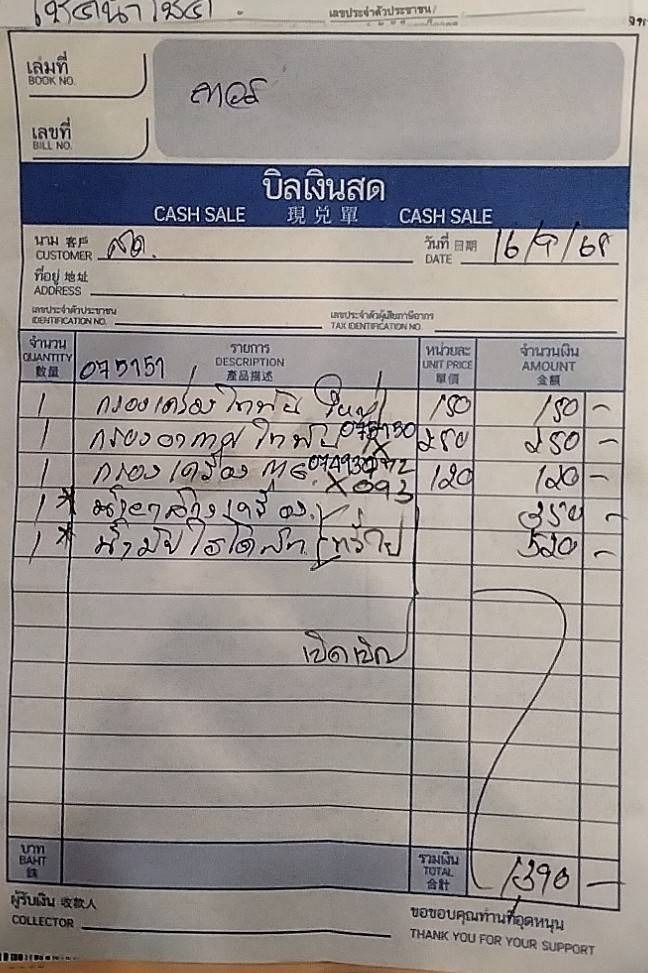 เลขประจำตัวประชาชน/
เล่มที่
BOOK NO.
เลขที่
BILL NO.
บิลเงินสด
CASH SALE 現兌單 CASH SALE
นาม 客戶
CUSTOMER สด.
วันที่ 日期
DATE 16/9/68
ที่อยู่ 地址
ADDRESS
เลขประจำตัวประชาชน
IDENTIFICATION NO.
เลขประจำตัวผู้เสียภาษีอากร
TAX IDENTIFICATION NO.
จำนวน QUANTITY 數量
รายการ DESCRIPTION 產品描述
หน่วยละ UNIT PRICE 單價
จำนวนเงิน AMOUNT 金額
075151
1 กรองเครื่อง ใหญ่ 150 150 -
1 กรองอากาศ 250 250 -
1 กรองเครื่อง 120 120 -
1* น้ำยาล้างเครื่อง 350 -
1* น้ำมัน 520 -
เปิดเบิก
บาท BAHT 銖
รวมเงิน TOTAL 合計 1390 -
ผู้รับเงิน 收款人
COLLECTOR
ขอขอบคุณท่านที่อุดหนุน
THANK YOU FOR YOUR SUPPORT